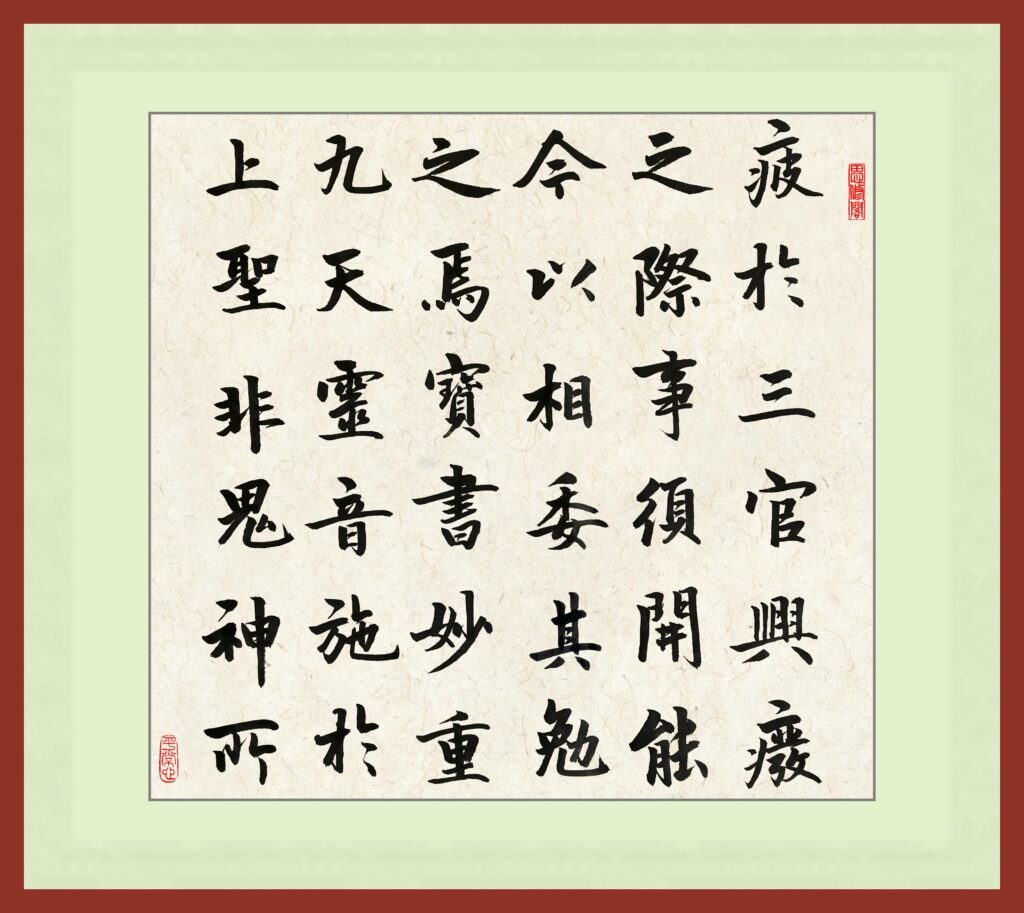 疲於三官興廢
之際事須開能
今以相委其勉
之焉寶書妙重
九天靈音施於
上聖非鬼神所
思微閣
平常心